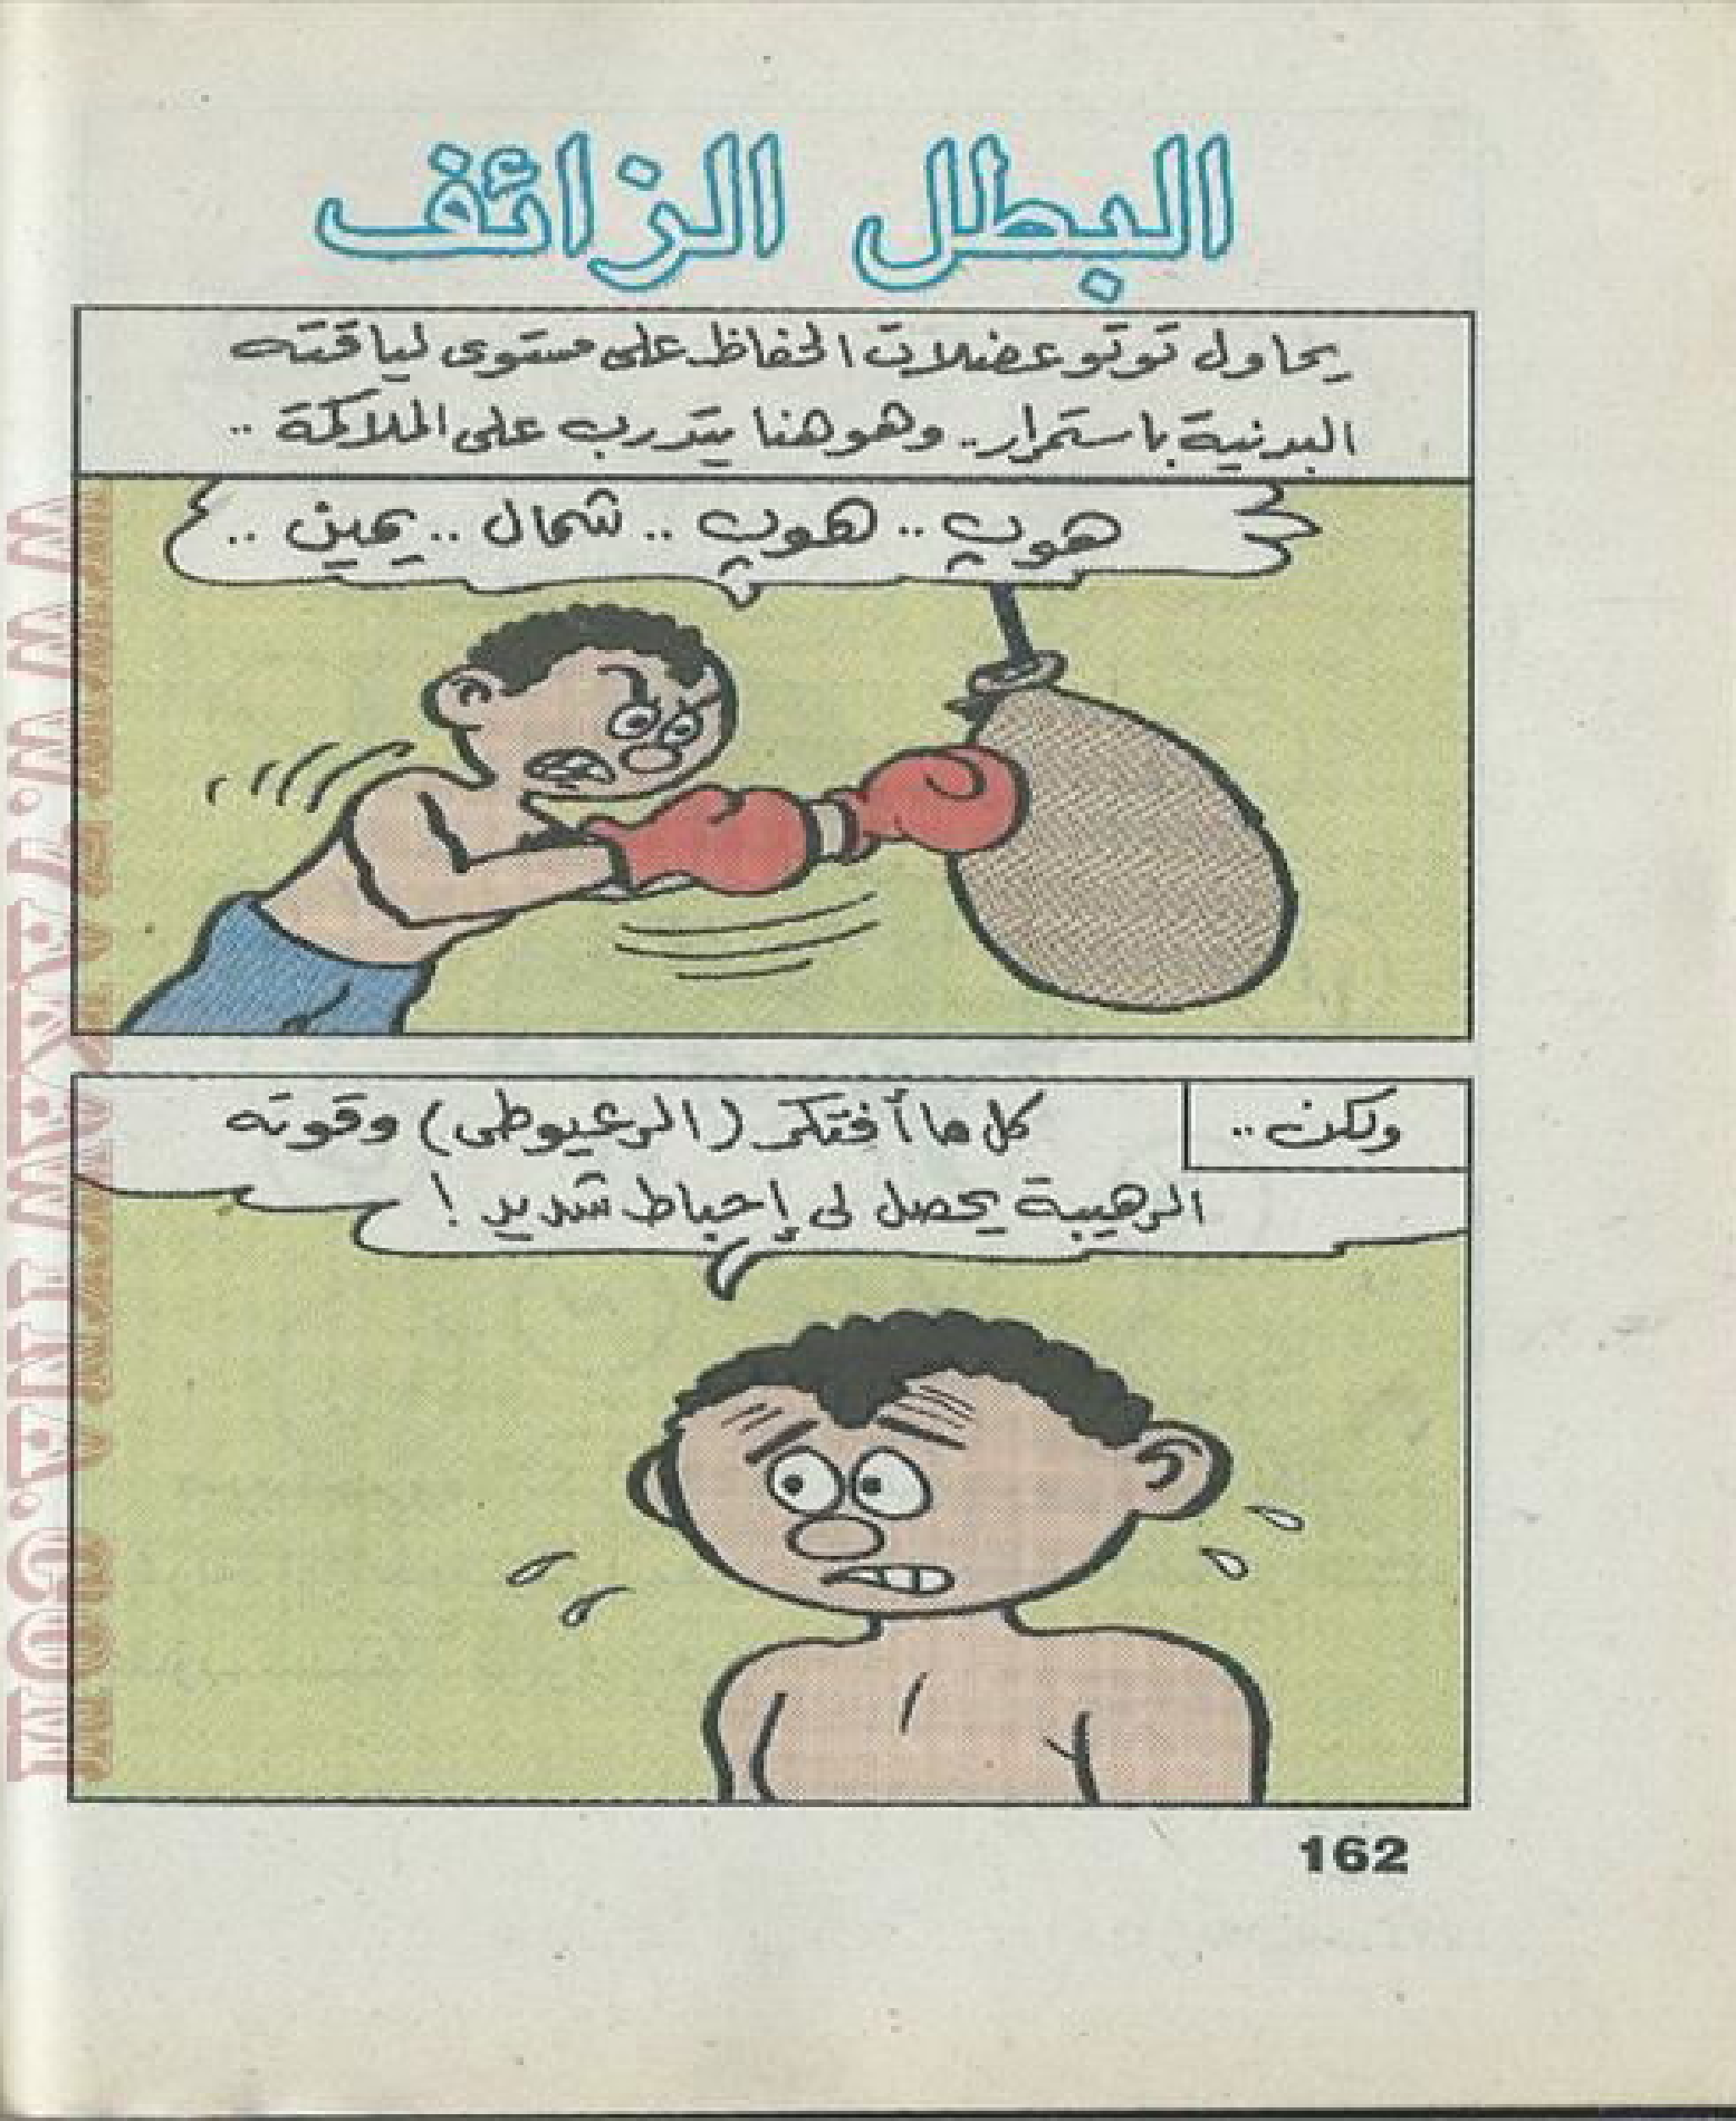 البطل الزائف
يحاول توتو عضلات الحفاظ على مستوى لياقته
البدنية باستمرار.. وهو هنا يتدرب على الملاكمة ..
هوب .. هوب .. شمال .. يمين ..
ولكن ..
كل ما أفتكر (الرعيوطى) وقوته
الرهيبة يحصل لى إحباط شديد !
162